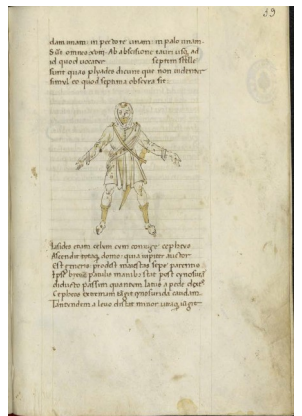 39
dam unam. in pectore unam. in pale unam.
Sunt omnes xviii. Ab abscisione tauri usq; ad
id quod vocatur septem stelle
sunt quas plyades dicunt que non videntur
simul eo quod septima obscura sit.
Iasides etiam celum cum coniuge cepheus
Ascendit totaq; domo. quia iupiter auctor
Est generis. prodest maiestas sepe parentis
Ipse brevi patulis manibus stat post cynosura
diducto passu. quantum latus a pede dextro
Cepheos extremam tangit cynosurida caudam.
Tantundem a levo distat minor utraq; urget